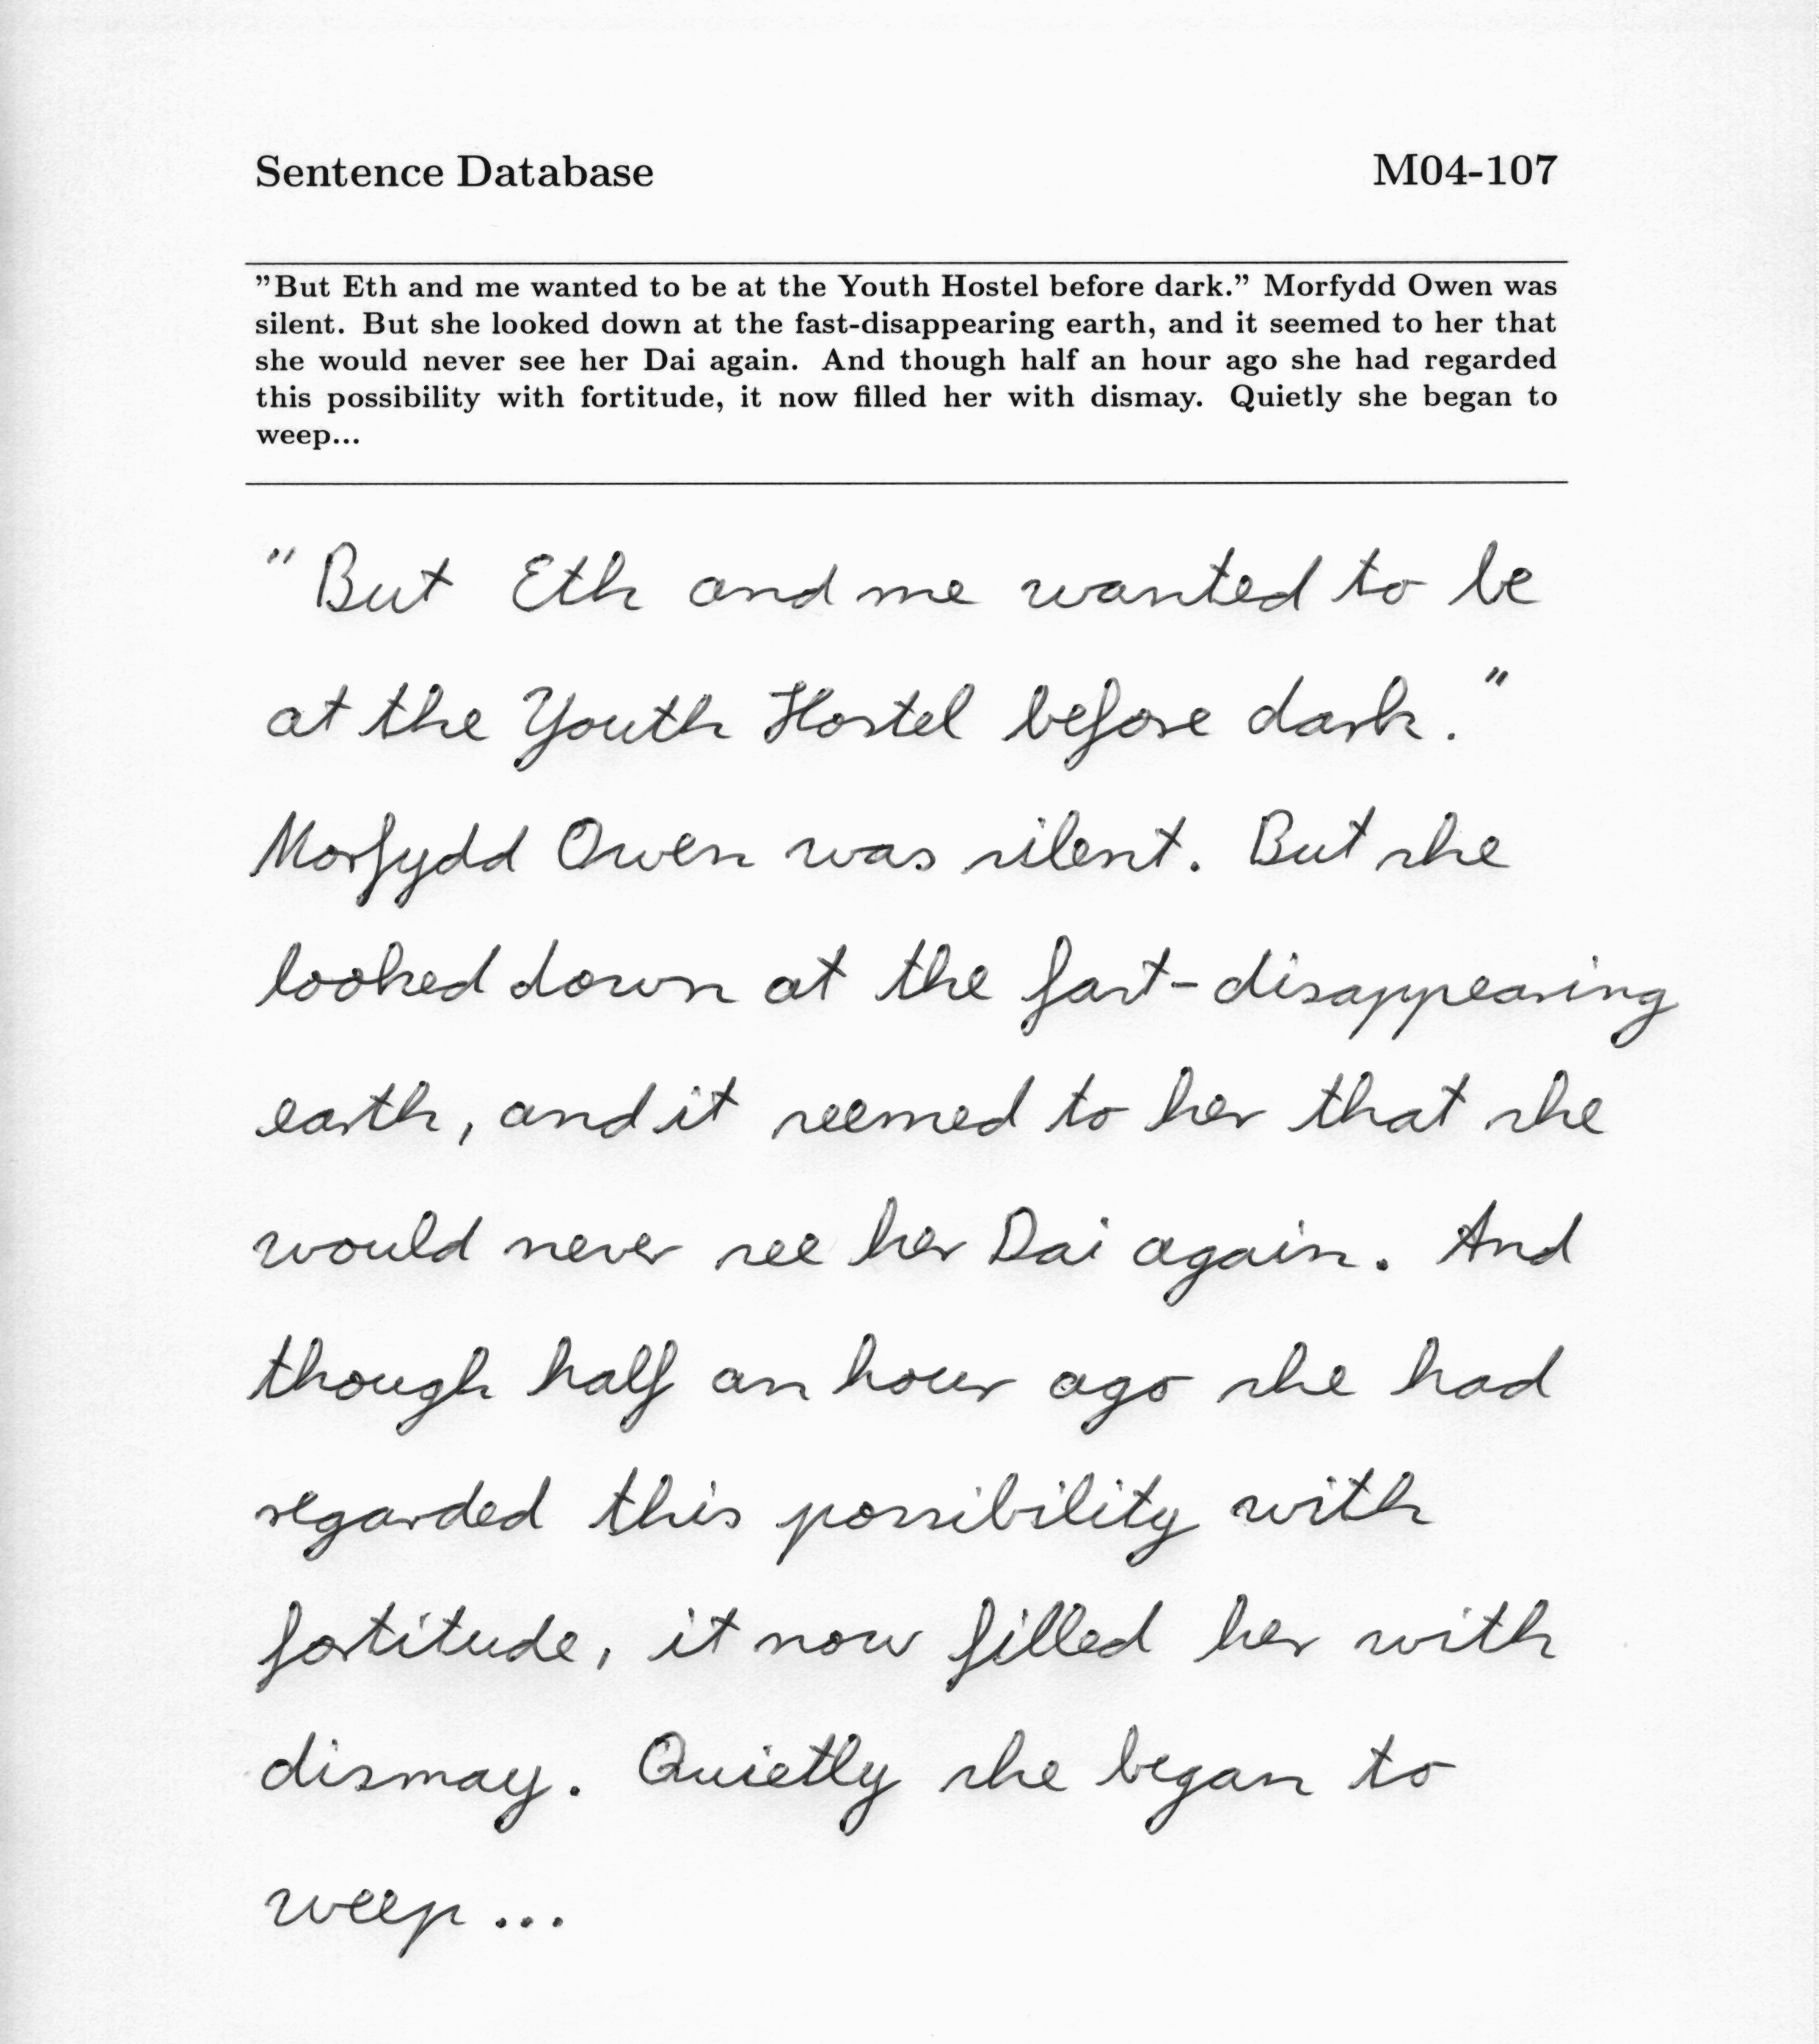 Sentence Database M04-107
"But Eth and me wanted to be at the Youth Hostel before dark." Morfydd Owen was
silent. But she looked down at the fast-disappearing earth, and it seemed to her that
she would never see her Dai again. And though half an hour ago she had regarded
this possibility with fortitude, it now filled her with dismay. Quietly she began to
weep...
"But Eth and me wanted to be
at the Youth Hostel before dark."
Morfydd Owen was silent. But she
looked down at the fast-disappearing
earth, and it seemed to her that she
would never see her Dai again. And
though half an hour ago she had
regarded this possibility with
fortitude, it now filled her with
dismay. Quietly she began to
weep...